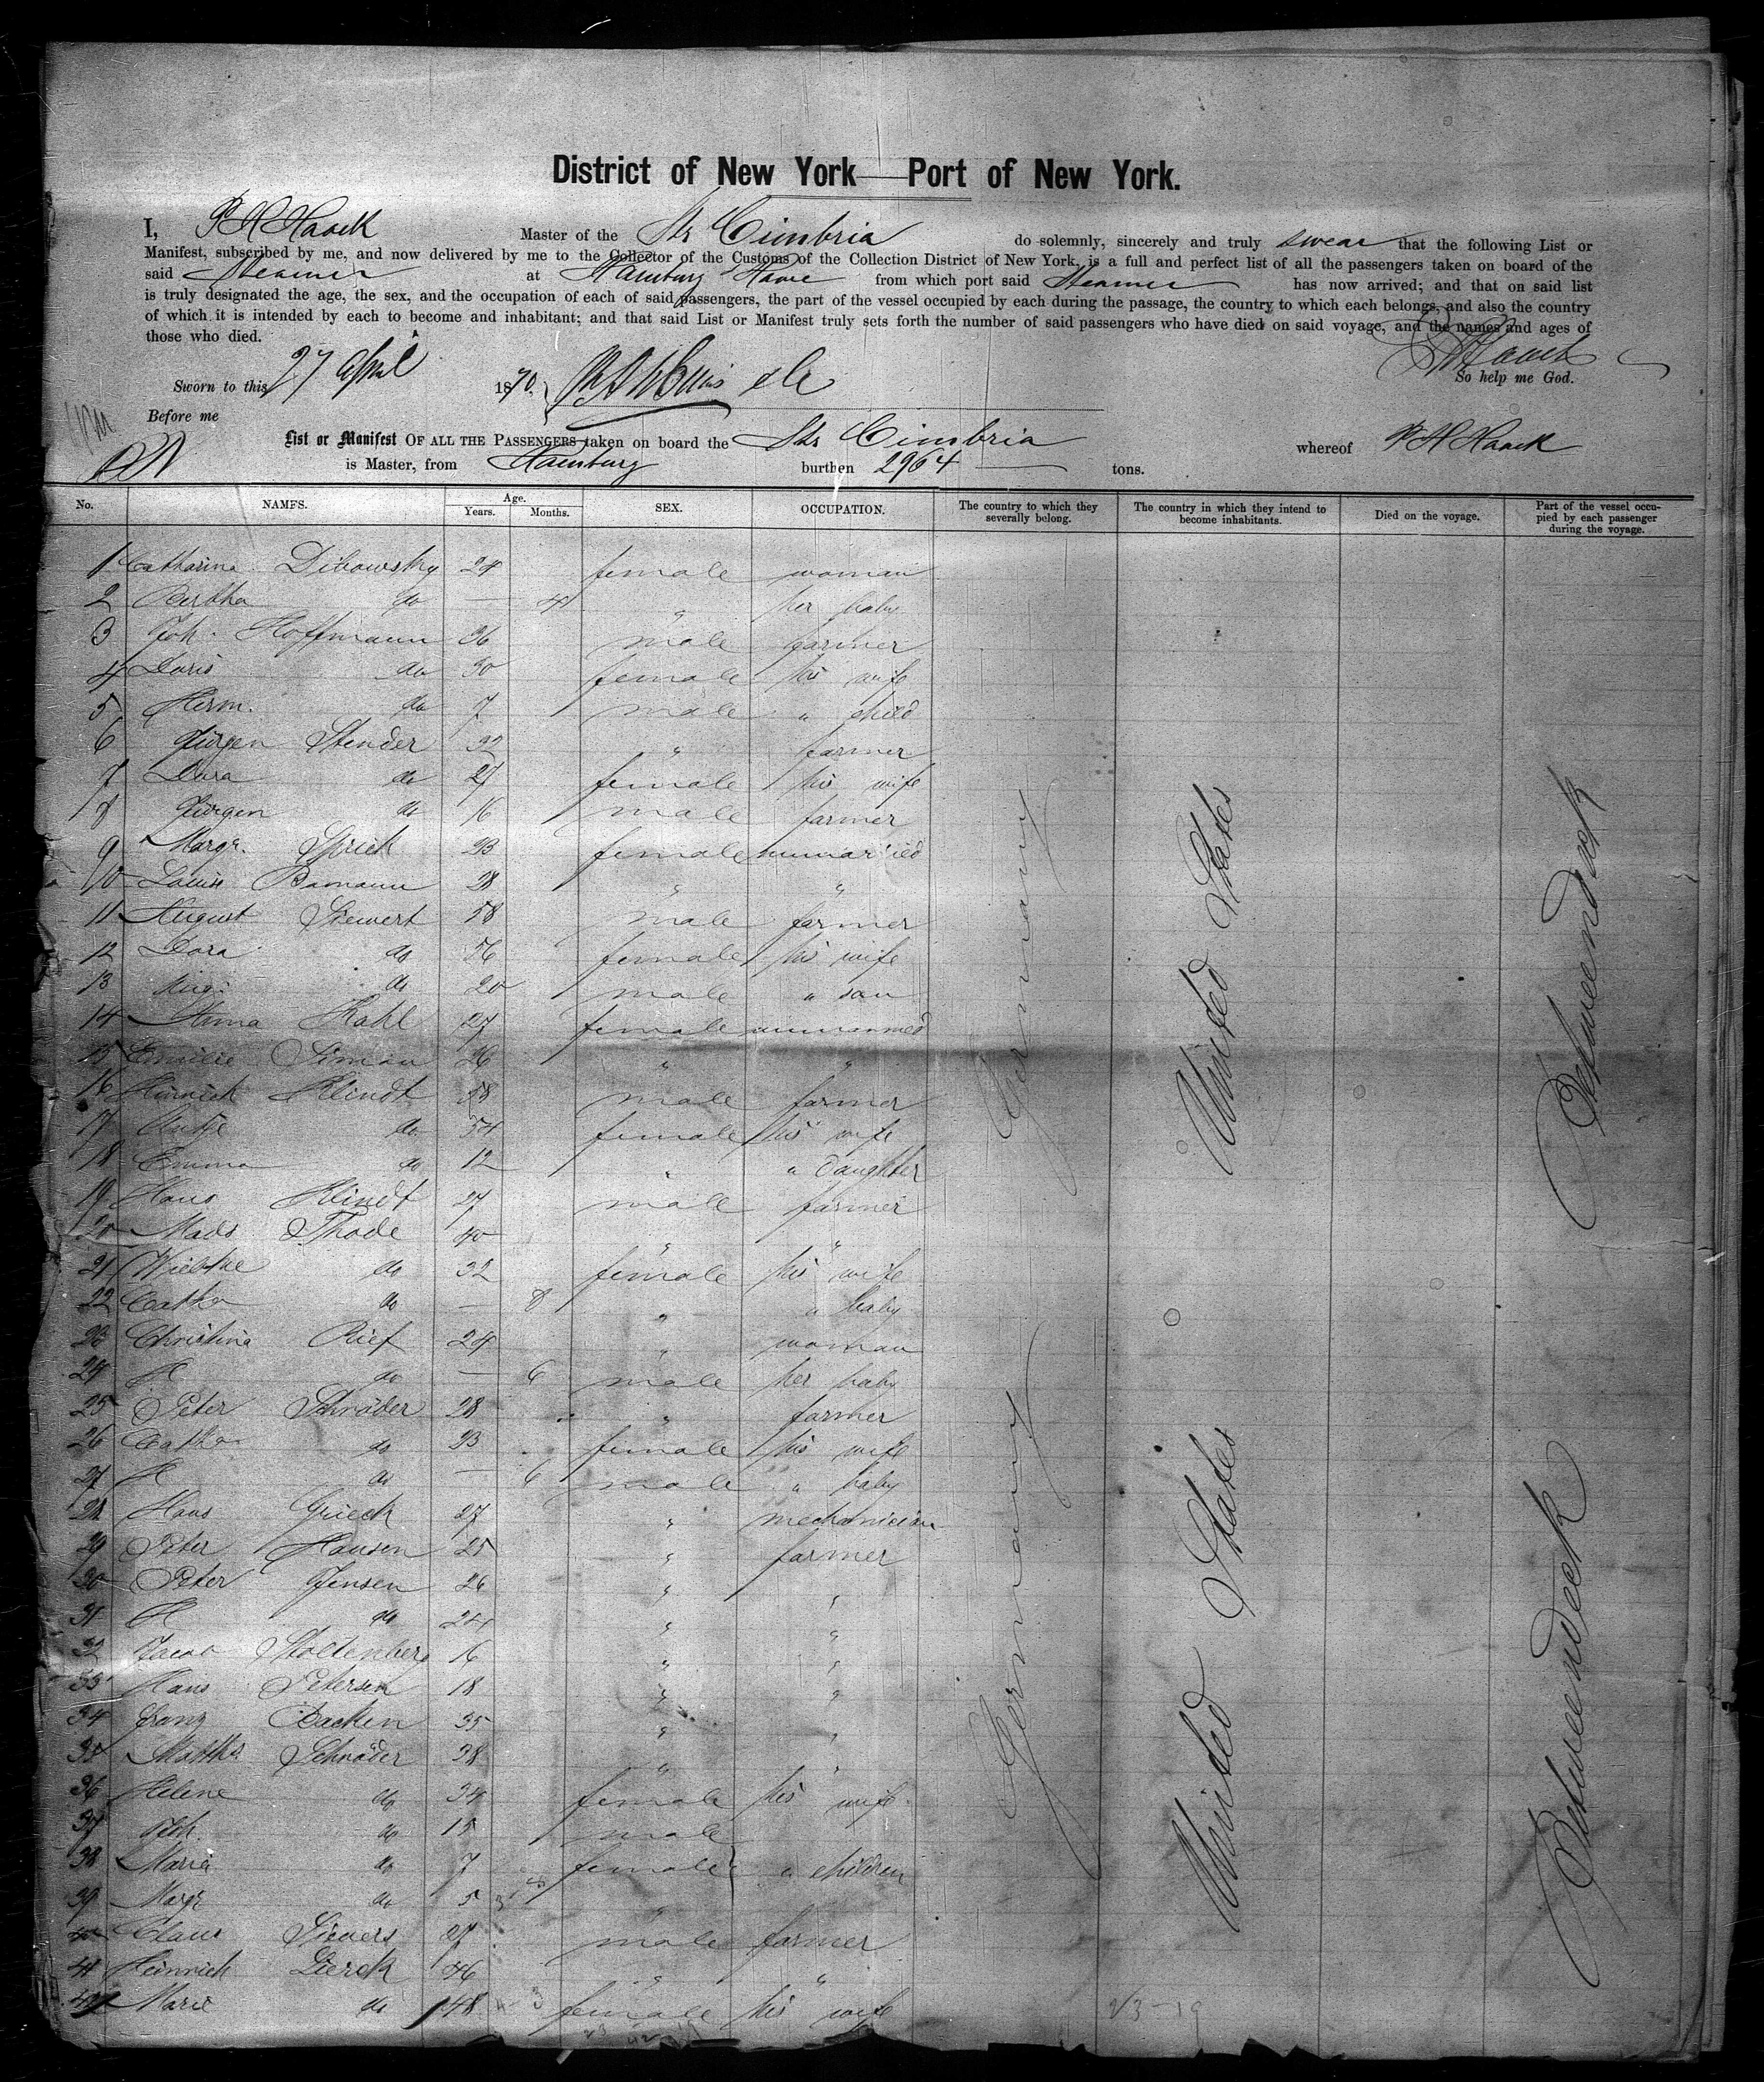 District of New York — Port of New York.
I, P H Haack Master of the Str Cimbria do solemnly, sincerely and truly swear that the following List or
Manifest, subscribed by me, and now delivered by me to the Collector of the Customs of the Collection District of New York, is a full and perfect list of all the passengers taken on board of the
said Steamer at Hamburg Havre from which port said Steamer has now arrived; and that on said list
is truly designated the age, the sex, and the occupation of each of said passengers, the part of the vessel occupied by each during the passage, the country to which each belongs, and also the country
of which it is intended by each to become and inhabitant; and that said List or Manifest truly sets forth the number of said passengers who have died on said voyage, and the names and ages of
those who died.
P H Haack
Sworn to this 27 April 1870. So help me God.
Before me
List or Manifest OF ALL THE PASSENGERS taken on board the Str Cimbria whereof P H Haack
is Master, from Hamburg burthen 2964 tons.
No. NAMES. Age. Years. Months. SEX. OCCUPATION. The country to which they severally belong. The country in which they intend to become inhabitants. Died on the voyage. Part of the vessel occupied by each passenger during the voyage.
1 Catharina Dibowsky 24 female woman
2 Bertha do — 4 " her baby
3 Joh. Hoffmann 36 male farmer
4 Doris do 30 female his wife
5 Herm. do 7 male " child
6 Jürgen Stender 32 " farmer
7 Dora do 27 female his wife
8 Jürgen do 16 male farmer
9 Margr. Speich 23 female unmarried
10 Louise Bamann 28 " "
11 August Siewert 58 male farmer
12 Dora do 56 female his wife
13 do 20 male " son
14 Anna Kahl 27 female unmarried
15 Emilie Simau 26 " "
16 Hinrich Klindt 58 male farmer
17 Antje do 54 female his wife
18 Emma do 12 " " daughter
19 Hans Klindt 27 male farmer
20 Mads Thode 40 " "
21 Wiebke do 32 female his wife
22 Catha do — 8 " " baby
23 Christina Rief 24 " woman
24 H do — 6 male her baby
25 Peter Schröder 28 " farmer
26 Catha do 23 female his wife
27 H do — 6 male " baby
28 Hans Grieck 27 " mechanician
29 Peter Hansen 25 " farmer
30 Peter Jensen 26 " "
31 H do 24 " "
32 Jacob Stoltenberg 16 " "
33 Hans Petersen 18 " "
34 Franz Dacken 35 " "
35 Matths Schröder 38 " "
36 Helene do 34 female his wife
37 Joh. do 15 male
38 Maria do 7 female " children
39 Margr do 5 "
40 Claus Sievers 27 male farmer
41 Heinrich Lierck 46 " "
42 Marie do 48 female his wife
Germany United States Betweendeck
Germany United States Betweendeck